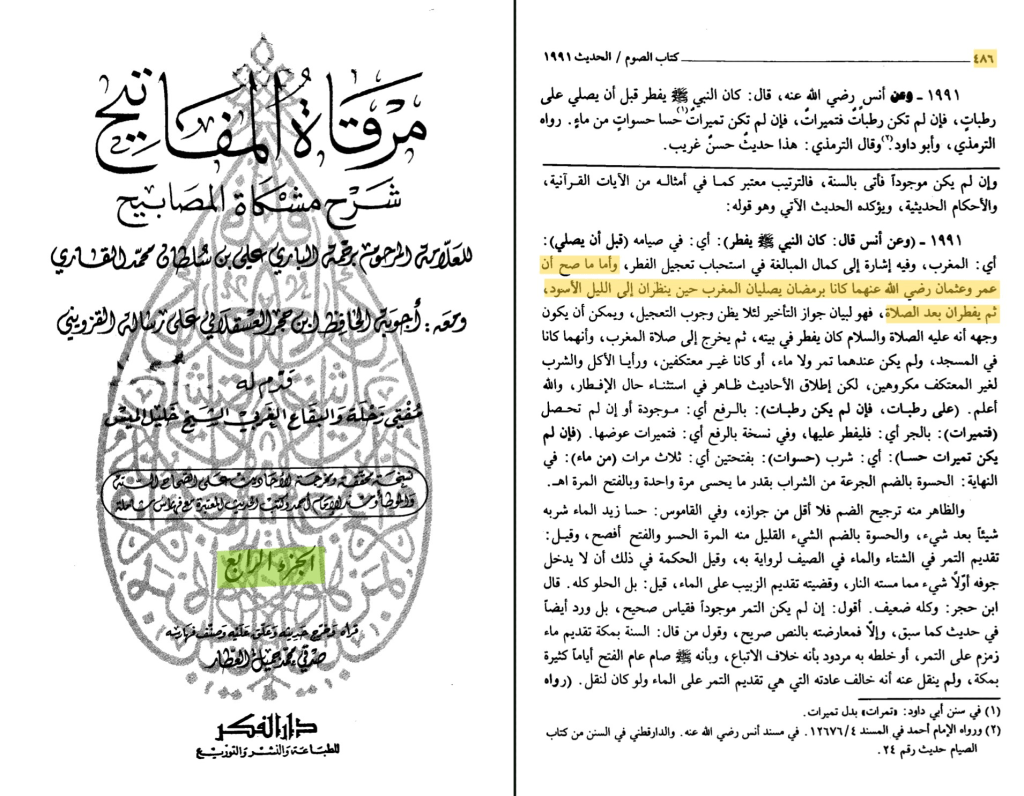 مرقاة المفاتيح
شرح مشكاة المصابيح
للعلامة المرحوم برحمة الباري علي بن سلطان محمد القاري
ومعه: أجوبة الحافظ ابن حجر العسقلاني على رسالة القزويني
قدم له
مفتي زحلة والبقاع الغربي الشيخ خليل الميس
نسخة محققة ومخرجة الأحاديث على الصحاح الستة
والموطأ ومسند الإمام أحمد وكتب الحديث المعتبرة مع فهارس شاملة
الجزء الرابع
قرأه وخرج حديثه وعلق عليه وصنف فهارسه
صدقي محمد جميل العطار
دار الفكر
للطباعة والنشر والتوزيع
٤٨٦ كتاب الصوم / الحديث ١٩٩١
١٩٩١ ـ وعن أنس رضي الله عنه، قال: كان النبي ﷺ يفطر قبل أن يصلي على
رطباتٍ، فإن لم تكن رطباتٌ فتميراتٌ، فإن لم تكن تميراتٌ(١) حسا حسواتٍ من ماءٍ. رواه
الترمذي، وأبو داود.(٢) وقال الترمذي: هذا حديثٌ حسنٌ غريب.
وإن لم يكن موجوداً فأتى بالسنة، فالترتيب معتبر كما في أمثاله من الآيات القرآنية،
والأحكام الحديثية، ويؤكده الحديث الآتي وهو قوله:
١٩٩١ ـ (وعن أنس قال: كان النبي ﷺ يفطر): أي: في صيامه (قبل أن يصلي):
أي: المغرب، وفيه إشارة إلى كمال المبالغة في استحباب تعجيل الفطر، وأما ما صح أن
عمر وعثمان رضي الله عنهما كانا برمضان يصليان المغرب حين ينظران إلى الليل الأسود،
ثم يفطران بعد الصلاة، فهو لبيان جواز التأخير لئلا يظن وجوب التعجيل، ويمكن أن يكون
وجهه أنه عليه الصلاة والسلام كان يفطر في بيته، ثم يخرج إلى صلاة المغرب، وأنهما كانا
في المسجد، ولم يكن عندهما تمر ولا ماء، أو كانا غير معتكفين، ورأيا الأكل والشرب
لغير المعتكف مكروهين، لكن إطلاق الأحاديث ظاهر في استثناء حال الإفطار، والله
أعلم. (على رطبات، فإن لم يكن رطبات): بالرفع أي: موجودة أو إن لم تحصل
(فتميرات): بالجر أي: فليفطر عليها، وفي نسخة بالرفع أي: فتميرات عوضها. (فإن لم
يكن تميرات حسا): أي: شرب (حسوات): بفتحتين أي: ثلاث مرات (من ماء): في
النهاية: الحسوة بالضم الجرعة من الشراب بقدر ما يحسى مرة واحدة وبالفتح المرة اهـ.
والظاهر منه ترجيح الضم فلا أقل من جوازه، وفي القاموس: حسا زيد الماء شربه
شيئاً بعد شيء، والحسوة بالضم الشيء القليل منه المرة الحسو والفتح أفصح، وقيل:
تقديم التمر في الشتاء والماء في الصيف لرواية به، وقيل الحكمة في ذلك أن لا يدخل
جوفه أوّلاً شيء مما مسته النار، وقضيته تقديم الزبيب على الماء، قيل: بل الحلو كله. قال
ابن حجر: وكله ضعيف. أقول: إن لم يكن التمر موجوداً فقياس صحيح، بل ورد أيضاً
في حديث كما سبق، وإلّا فمعارضته بالنص صريح، وقول من قال: السنة بمكة تقديم ماء
زمزم على التمر، أو خلطه به مردود بأنه خلاف الاتباع، وبأنه ﷺ صام عام الفتح أياماً كثيرة
بمكة، ولم ينقل عنه أنه خالف عادته التي هي تقديم التمر على الماء ولو كان لنقل. (رواه
(١) في سنن أبي داود: «تمرات» بدل تميرات.
(٢) ورواه الإمام أحمد في المسند ١٢٦٧٦/٤. في مسند أنس رضي الله عنه. والدارقطني في السنن من كتاب
الصيام حديث رقم ٢٤.